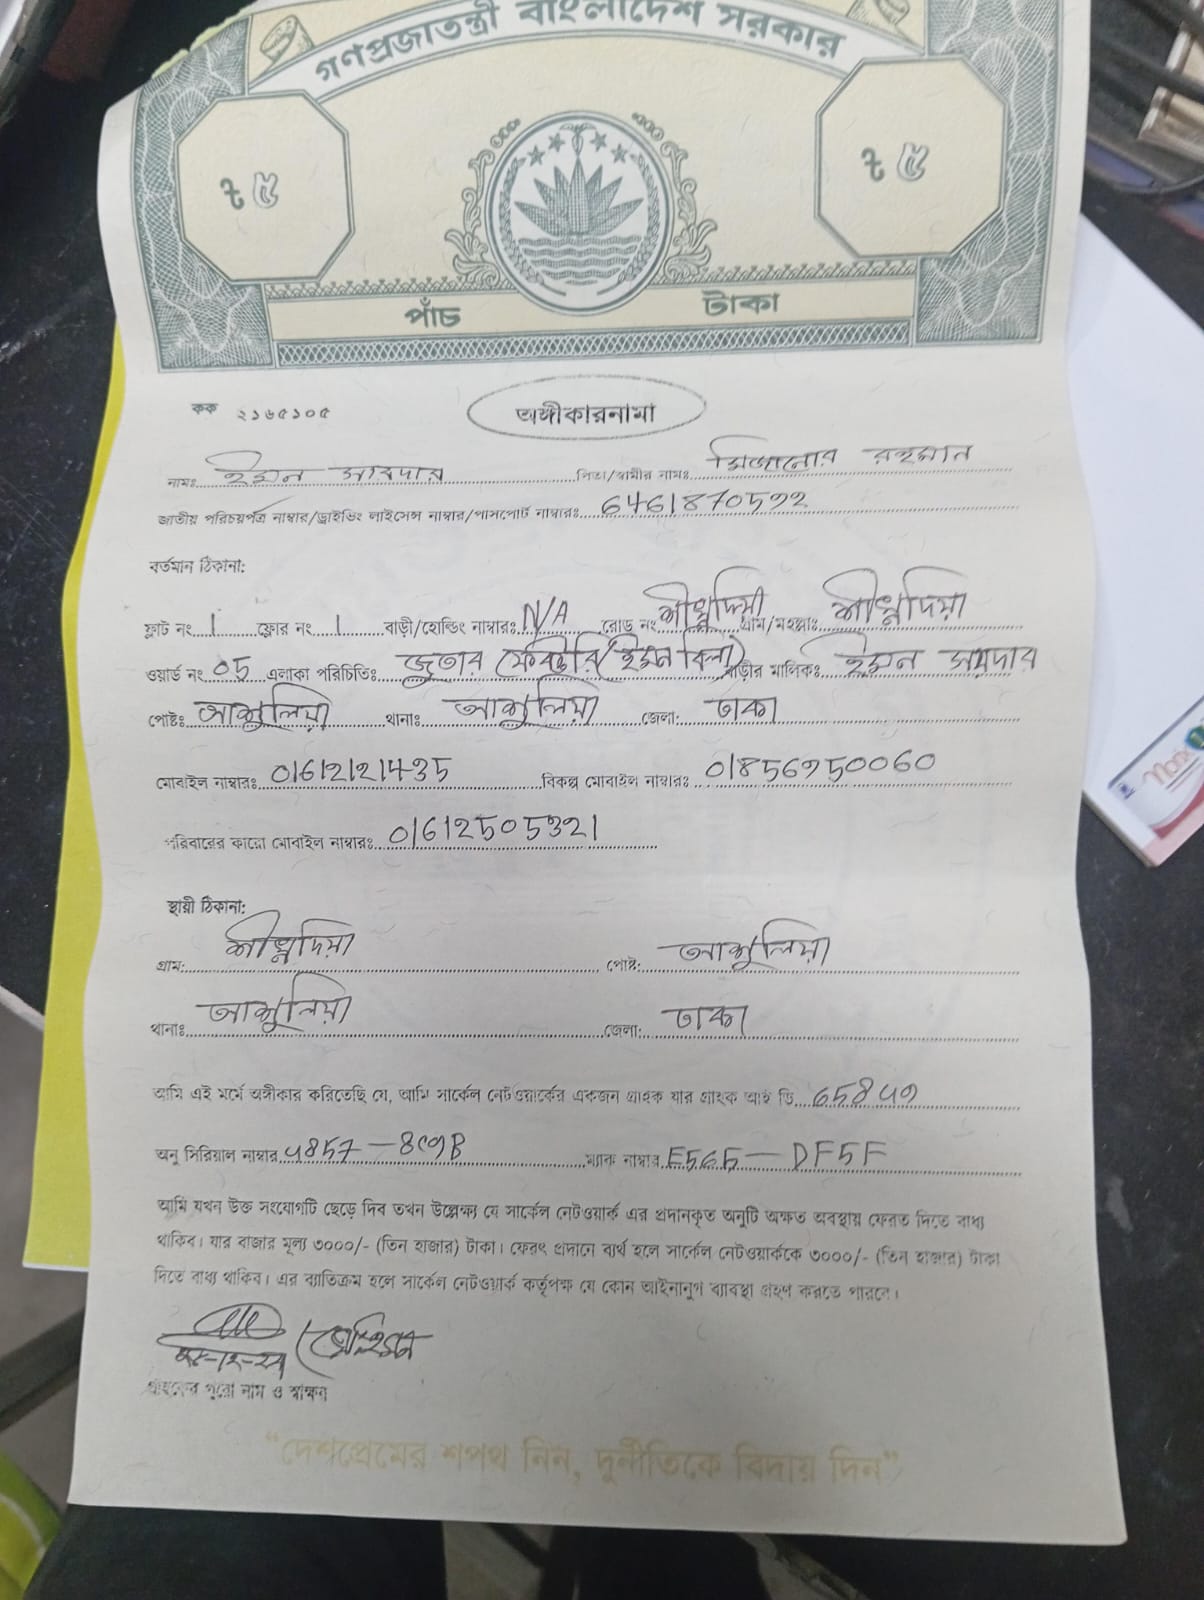 গণপ্রজাতন্ত্রী বাংলাদেশ সরকার
৳ ৫
৳ ৫
পাঁচ টাকা
কক ২১৬৫১০৫
অঙ্গীকারনামা
নামঃ ইমন সরদার পিতা/স্বামীর নামঃ মিজানোর রহমান
জাতীয় পরিচয়পত্র নাম্বার/ড্রাইভিং লাইসেন্স নাম্বার/পাসপোর্ট নাম্বারঃ 6461870592
বর্তমান ঠিকানা:
ফ্লাট নং 1 ফ্লোর নং 1 বাড়ী/হোল্ডিং নাম্বারঃ N/A রোড নং গ্রাম/মহল্লাঃ
ওয়ার্ড নং 05 এলাকা পরিচিতিঃ জুতার ফেক্টরি/ইমন ভিলা বাড়ীর মালিকঃ ইমন সরদার
পোষ্টঃ আশুলিয়া থানাঃ আশুলিয়া জেলা: ঢাকা
মোবাইল নাম্বারঃ 01612121435 বিকল্প মোবাইল নাম্বারঃ 01856950060
পরিবারের কারো মোবাইল নাম্বারঃ 01612505321
স্থায়ী ঠিকানা:
গ্রাম: পোষ্ট: আশুলিয়া
থানাঃ আশুলিয়া জেলা: ঢাকা
আমি এই মর্মে অঙ্গীকার করিতেছি যে, আমি সার্কেল নেটওয়ার্কের একজন গ্রাহক যার গ্রাহক আই ডি
অনু সিরিয়াল নাম্বার ম্যাক নাম্বার E565-DF5F
আমি যখন উক্ত সংযোগটি ছেড়ে দিব তখন উল্লেক্ষ্য যে সার্কেল নেটওয়ার্ক এর প্রদানকৃত অনুটি অক্ষত অবস্থায় ফেরত দিতে বাধ্য
থাকিব। যার বাজার মূল্য ৩০০০/- (তিন হাজার) টাকা। ফেরৎ প্রদানে ব্যর্থ হলে সার্কেল নেটওয়ার্ককে ৩০০০/- (তিন হাজার) টাকা
দিতে বাধ্য থাকিব। এর ব্যতিক্রম হলে সার্কেল নেটওয়ার্ক কর্তৃপক্ষ যে কোন আইনানুগ ব্যাবস্থা গ্রহণ করতে পারবে।
গ্রাহকের পুরো নাম ও স্বাক্ষর
“দেশপ্রেমের শপথ নিন, দুর্নীতিকে বিদায় দিন”